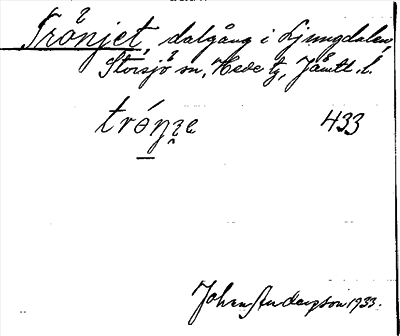 Trånjet, dalgång i Ljungdalen,
Storsjö sn, Hede tg, Jämtl. l.
tróŋʒe 433
Johan Anderson 1933.